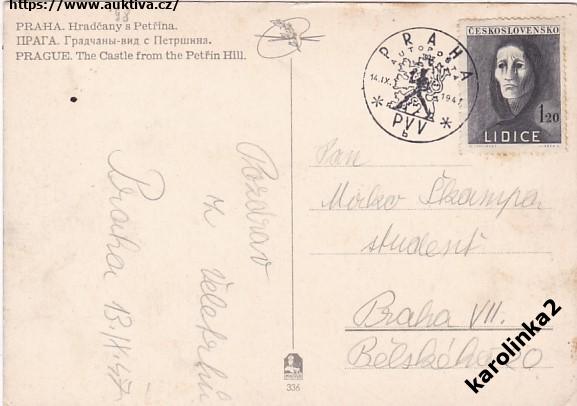 https://www.auktiva.cz/
98
PRAHA. Hradčany s Petřína.
ПРАГА. Градчаны-вид с Петршина.
PRAGUE. The Castle from the Petřín Hill.
PRAHA
AUTOPOŠTA
14.IX. 1947
PVV
b
ČESKOSLOVENSKO
1.20
LIDICE
Pozdrav
z Veletrhů
Praha 13.IX.47
Pan
Mirko Škampa
student
Praha VII.
Bělského 20
336
karolinka2